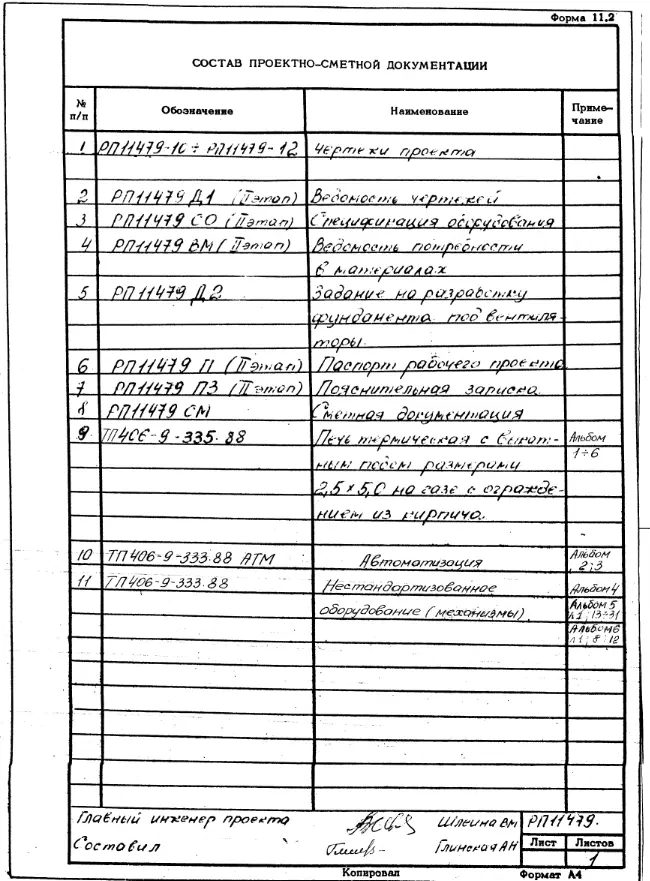 Форма 11.2
СОСТАВ ПРОЕКТНО-СМЕТНОЙ ДОКУМЕНТАЦИИ
№ п/п Обозначение Наименование Примечание
1 РП11479-10÷РП11479-12 Чертежи проекта
2 РП11479 Д1 (II этап) Ведомость чертежей
3 РП11479 СО (II этап) Спецификация оборудования
4 РП11479 ВМ (II этап) Ведомость потребности
в материалах
5 РП11479 Д2 Задание на разработку
фундамента под вентиля-
торы.
6 РП11479 П (II этап) Паспорт рабочего проекта
7 РП11479 ПЗ (II этап) Пояснительная записка
8 РП11479 СМ Сметная документация
9 ТП406-9-335.88 Печь термическая с выкат- Альбом
ным подом размерами 1÷6
2,5×5,0 на газе с огражде-
нием из кирпича.
10 ТП406-9-333.88 АТМ Автоматизация Альбом 2;3
11 ТП406-9-333.88 Нестандартизованное Альбом 4
оборудование (механизмы). Альбом 5 л1; 13÷31
Альбом 6 л1; 8; 12
Главный инженер проекта Шлеина ВМ РП11479.
Составил Глинская АН Лист Листов
1
Копировал Формат А4